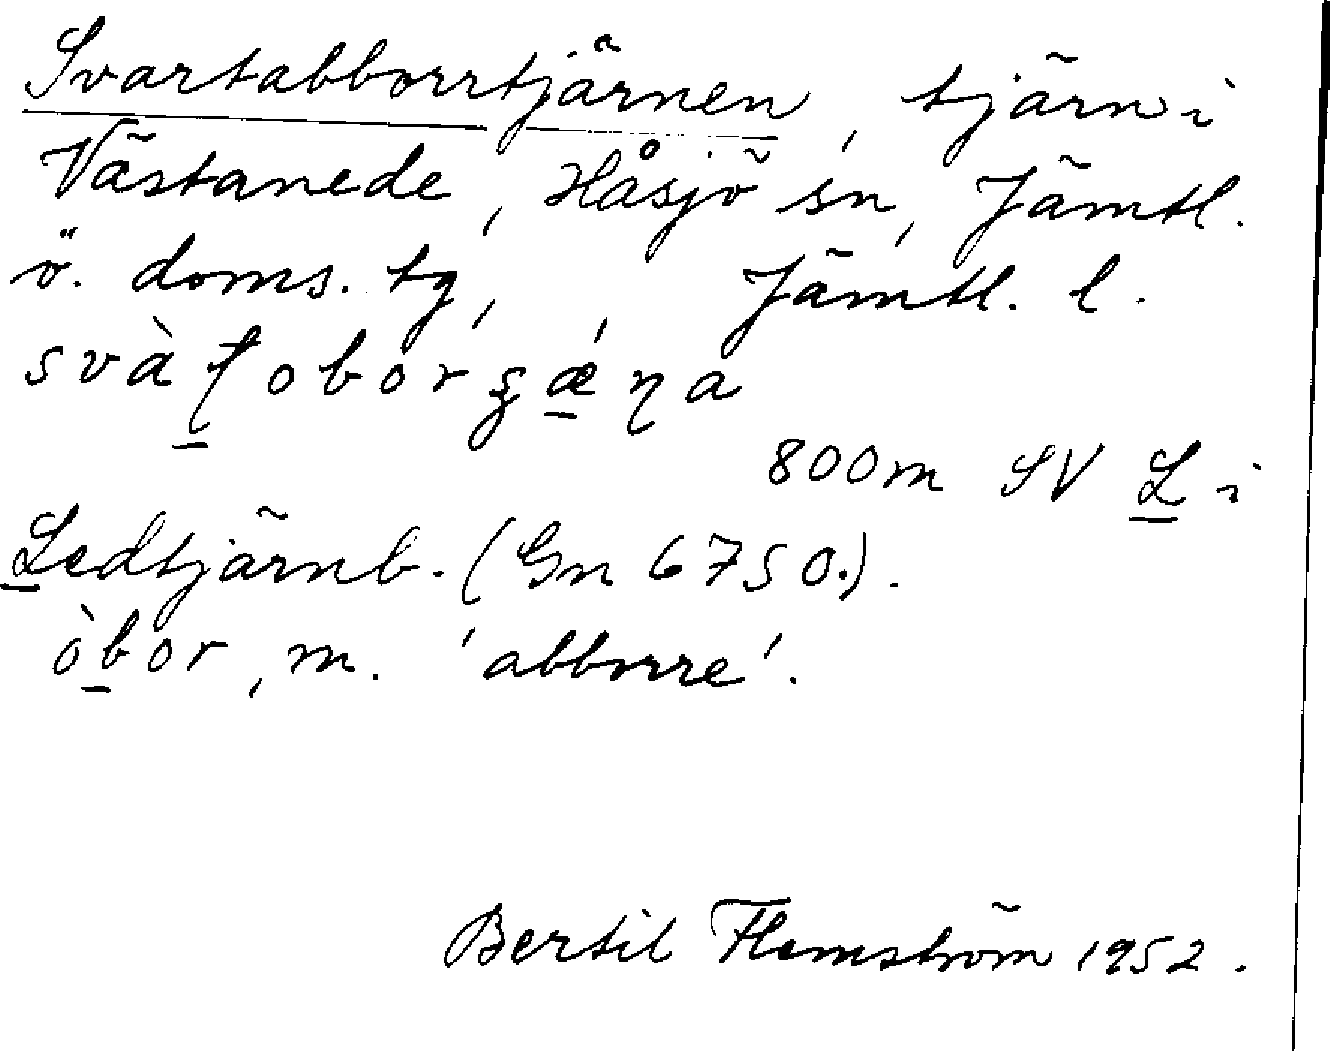 Svartabborrtjärnen, tjärn i
Västanede, Håsjö sn, Jämtl.
ö. doms. tg, Jämtl. l.
800m SV L i
Ledtjärnb. (Gn 6750.).
òbor, m. 'abborre'.
Bertil Flemström 1952.